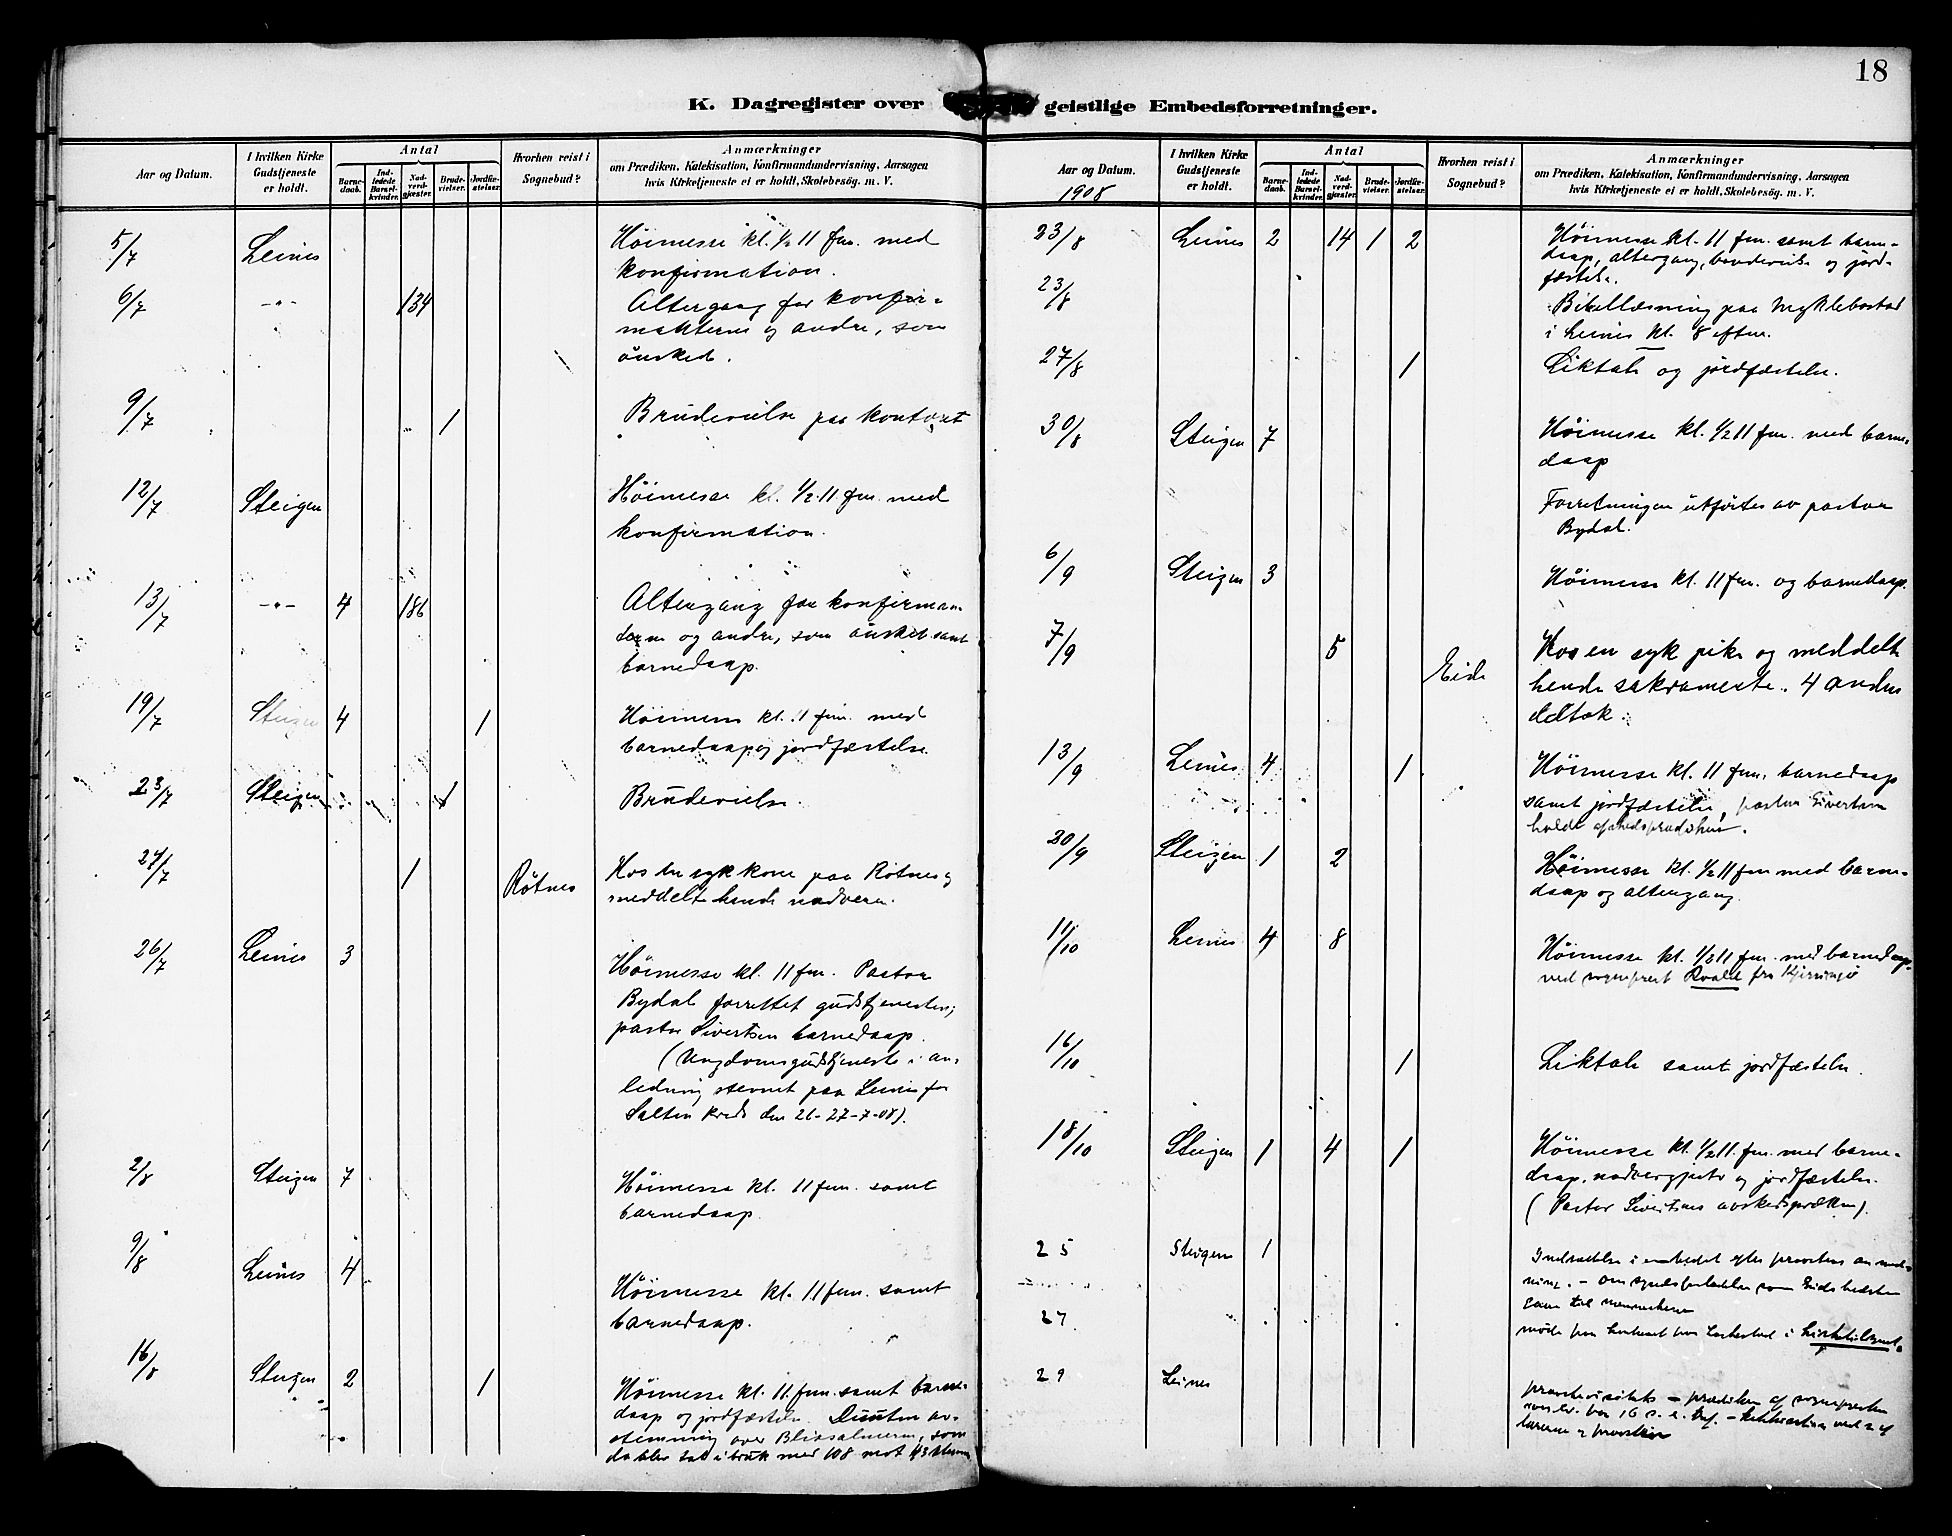 18
K. Dagregister over geistlige Embedsforretninger.
Aar og Datum.
I hvilken Kirke Gudstjeneste er holdt.
Antal
Barnedaab.
Indledede Barselkvinder.
Nadverdgjæster.
Brudevielser.
Jordfæstelser.
Hvorhen reist i Sognebud?
Anmærkninger
om Prædiken, Katekisation, Konfirmandundervisning, Aarsagen
hvis Kirketjeneste ei er holdt, Skolebesög. m. V.
5/7 Leines Höimesse kl. 1/2 11 fm. med
konfirmation.
6/7 -"- 134 Altergang for konfir-
manterne og andre, som
önsked.
9/7 1 Brudevielse paa kontoret
12/7 Steigen Höimesse kl. 1/2 11 fm. med
konfirmation.
13/7 -"- 4 186 Altergang for konfirman-
terne og andre, som önsket samt
barnedaap.
19/7 Steigen 4 1 Höimesse kl. 11 fm. med
barnedaap og jordfæstelse
23/7 Steigen 1 Brudevielse.
24/7 1 Rötnes Hos en syk kone paa Rötnes og
meddelte hende nadveren.
26/7 Leines 3 Höimesse kl. 11 fm. Pastor
Bydal forrettet gudstjenesten;
pastor Sivertsen barnedaap.
(Ungdomsgudstjeneste i an-
ledning stevnet paa Leines for
Salten kreds den 26-27-7-08).
2/8 Steigen 7 Höimesse kl. 11 fm. samt
barnedaap.
9/8 Leines 4 Höimesse kl. 11 fm. samt
barnedaap.
16/8 Steigen 2 1 Höimesse kl. 11 fm. samt barne-
daap og jordfæstelse. Desuten av-
stemning over Blixsalmerne, som
da blev sat i bruk med 108 mot 43 stemmer
Aar og Datum.
1908
I hvilken Kirke Gudstjeneste er holdt.
Antal
Barnedaab.
Indledede Barselkvinder.
Nadverdgjæster.
Brudevielser.
Jordfæstelser.
Hvorhen reist i Sognebud?
Anmærkninger
om Prædiken, Katekisation, Konfirmandundervisning, Aarsagen
hvis Kirketjeneste ei er holdt, Skolebesög. m. V.
23/8 Leines 2 14 1 2 Höimesse kl. 11 fm. samt barne-
daap, altergang, brudevielse og jord-
fæstelse.
23/8 Bibellæsning paa Myklebostad
i Leines kl. 8 eftm.
27/8 1 Liktale og jordfæstelse.
30/8 Steigen 7 Höimesse kl. 1/2 11 fm. med barne-
daap
Forretningen utførtes av pastor
Bydal.
6/9 Steigen 3 Höimesse kl. 11 fm. og barnedaap.
7/9 5 Eide Hos en syk pike og meddelte
hende sakramente. 4 andre
deltok.
13/9 Leines 4 1 Höimesse kl. 11 fm. barnedaap
samt jordfæstelse, pastor Sivertsen
holdt afskedsprædiken.
20/9 Steigen 1 2 Höimesse kl. 1/2 11 fm med barne-
daap og altergang.
11/10 Leines 4 8 Höimesse kl. 1/2 11 fm. med barnedaap.
ved sogneprest Roald fra Kjerringö
16/10 1 Liktale samt jordfæstelse.
18/10 Steigen 1 4 1 Höimesse kl. 1/2 11. fm. med barne-
daap, nadvergjester og jordfæstelse.
(Pastor Sivertsens avskedsprædken).
25 Steigen 1 Indsættelse i embedet efter provstens anmod-
ning. - om
til menneskene
27 möde paa
29 Leines provstevisitats - prædiken af sognepresten
og provsten